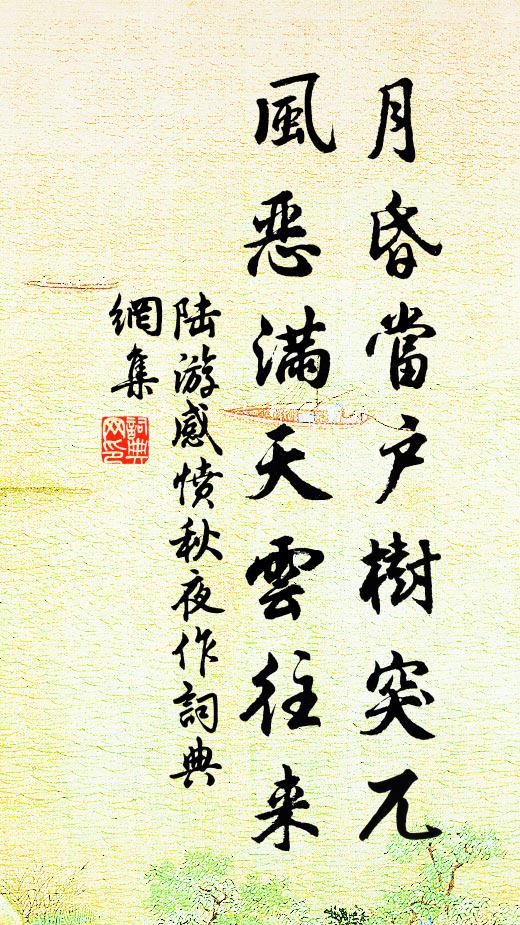 月昏當户樹突兀
風惡滿天雲往来
陆游感憤秋夜作詞典
網集
詞典
网印